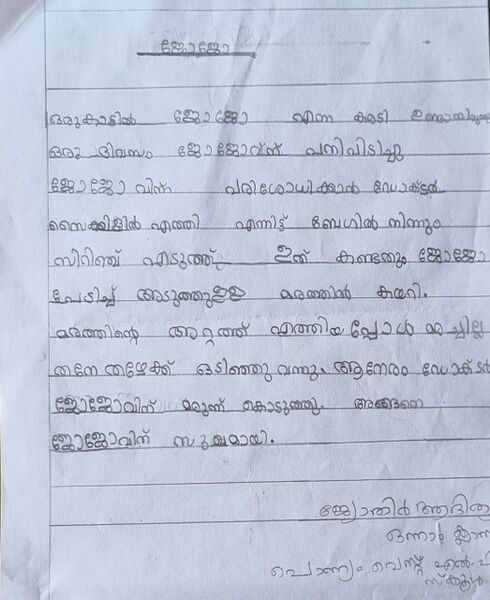 ജോജോ
ഒരുകാട്ടിൽ ജോജോ എന്ന കരടി ഉണ്ടായിരുന്നു
ഒരു ദിവസം ജോജോവ്ന് പനിപിടിച്ചു
ജോജോ വിന് പരിശോധിക്കാൻ ഡോക്ടർ
സൈക്കിളിൽ എത്തി എന്നിട്ട് ബേഗിൽ നിന്നും
സിറിഞ്ച് എടുത്ത്. ഇത് കണ്ടതും ജോജോ
പേടിച്ച് അടുത്തുള്ള മരത്തിൽ കയറി.
മരത്തിന്റെ അറ്റത്ത് എത്തിയപ്പോൾ മരച്ചില്ല
തനേ തഴേക്ക് ഒടിഞ്ഞു വന്നു. ആനേരം ഡോക്ടർ
ജോജോവിന് മരുന്ന് കൊടുത്തു. അങ്ങനെ
ജോജോവിന് സുഖമായി.
ജ്യോതിർ ആദിത്യ
ഒന്നാം ക്ലാസ
പൊന്ന്യം വെസ്റ്റ് എൽ.പി
സ്കൂൾ.